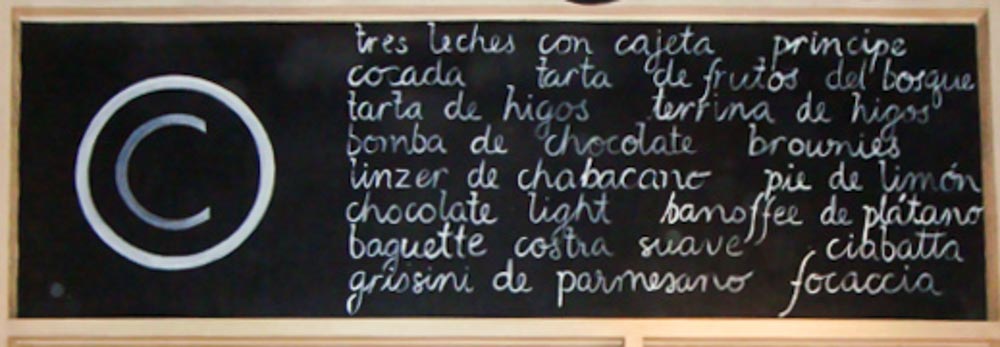 ©
tres leches con cajeta principe
cocada tarta de frutos del bosque
tarta de higos terrina de higos
bomba de chocolate brownies
linzer de chabacano pie de limón
chocolate light banoffee de plátano
baguette costra suave ciabatta
grissini de parmesano focaccia